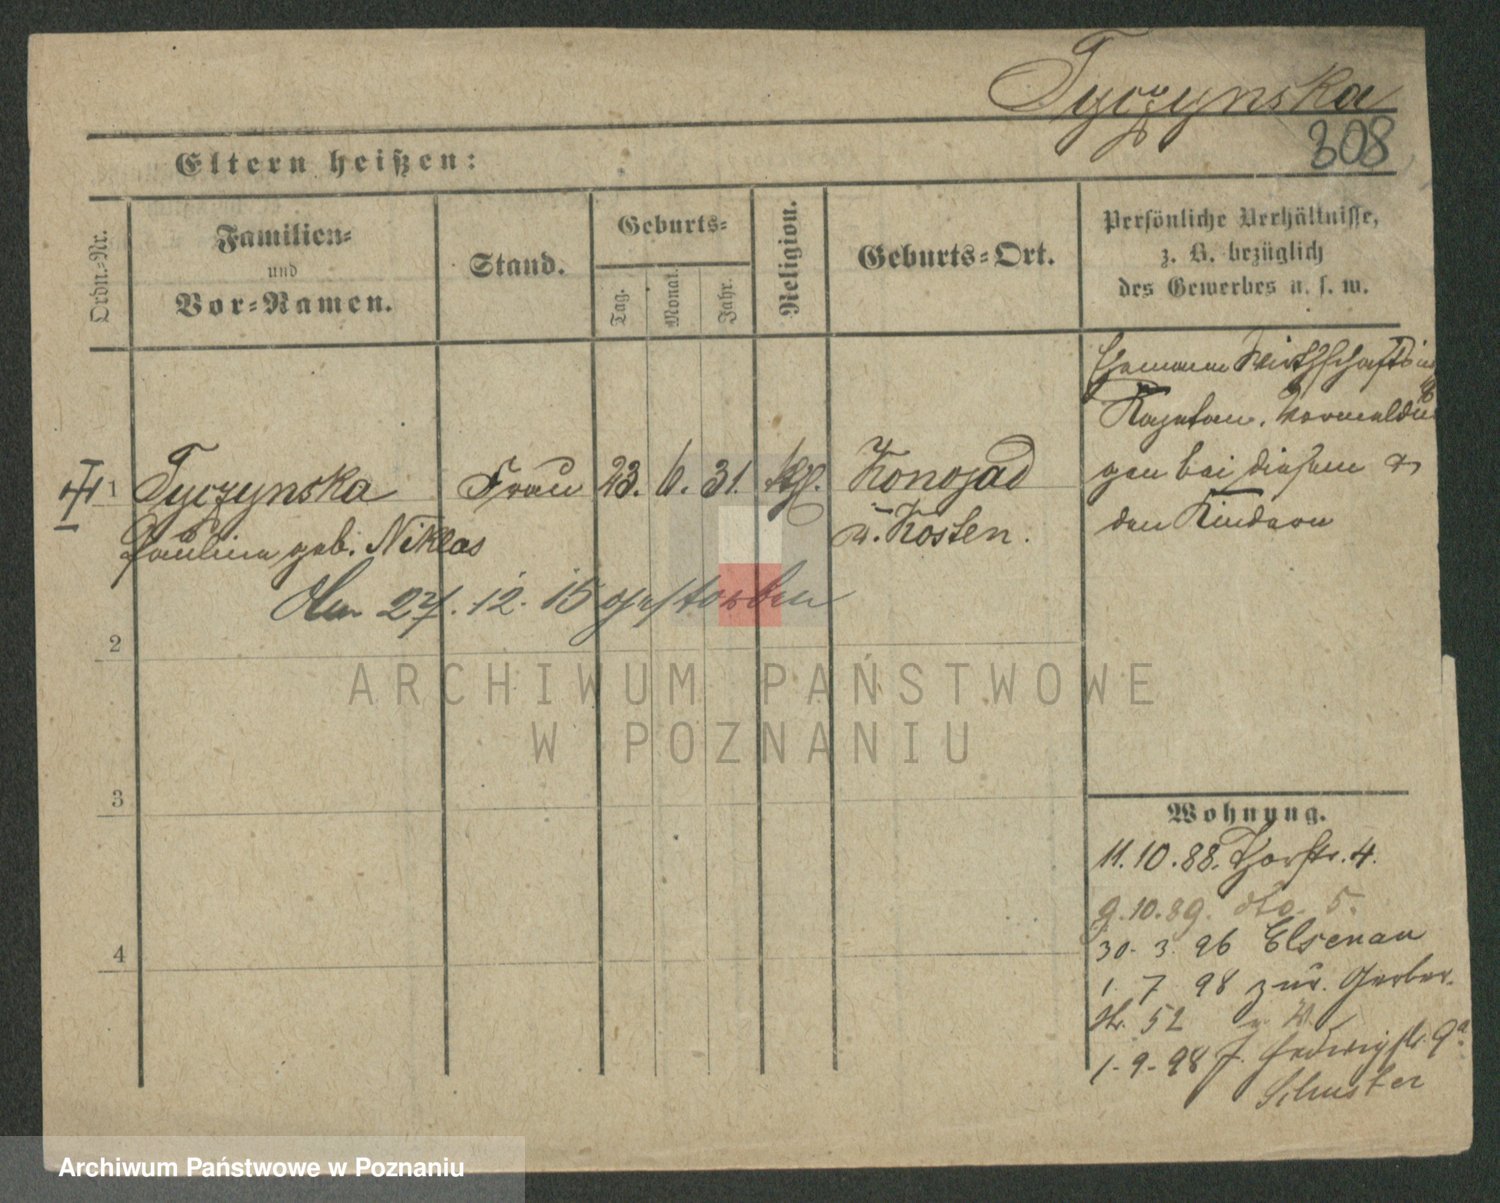 Tyczynska
308
Eltern heißen:
Ordn.-Nr.
Familien-
und
Vor-Namen.
Stand.
Geburts-
Tag.
Monat.
Jahr.
Religion.
Geburts-Ort.
Persönliche Verhältnisse,
z. B. bezüglich
des Gewerbes u. s. w.
Ehemann Wirthschafts
Kajetan. Vermeldun
gen bei diesem &
den Kindern
1 Tyczynska Frau 23. 6. 31. kth. Konojad
Paulina geb. Niklas Kosten.
27. 12. 15 gestorben
2
3
4
Wohnung.
11. 10. 88. Thorstr. 4.
9. 10. 89. dto. 5.
30. 3. 96 Elsenau
1. 7. 98 zur. Gerber-
str. 52
1. 9. 98 Hedwigstr. 9a
Schuster
ARCHIWUM PAŃSTWOWE
W POZNANIU
Archiwum Państwowe w Poznaniu